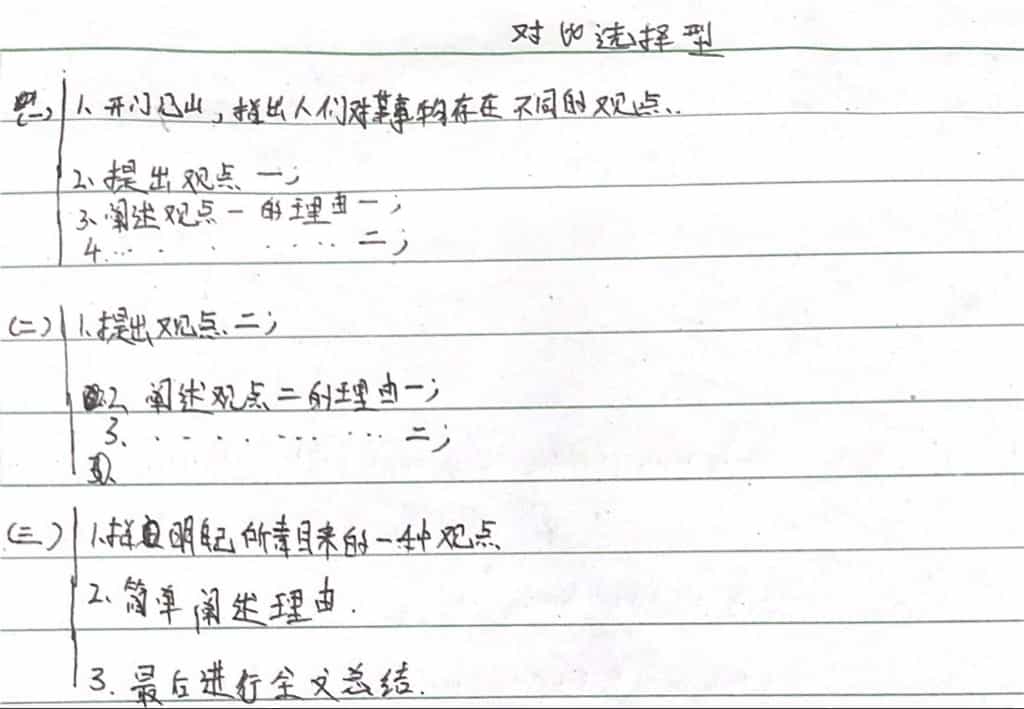 对比选择型
(一) 1、开门见山,指出人们对某事物存在不同的观点.
2、提出观点一;
3、阐述观点一的理由一;
4.... . . . . . . . 二;
(二) 1.提出观点二;
2、阐述观点二的理由一;
3、. . . . . . . . . . . 二;
(三) 1.指明自己所青目来的一种观点
2、简单阐述理由.
3. 最后进行全文总结.